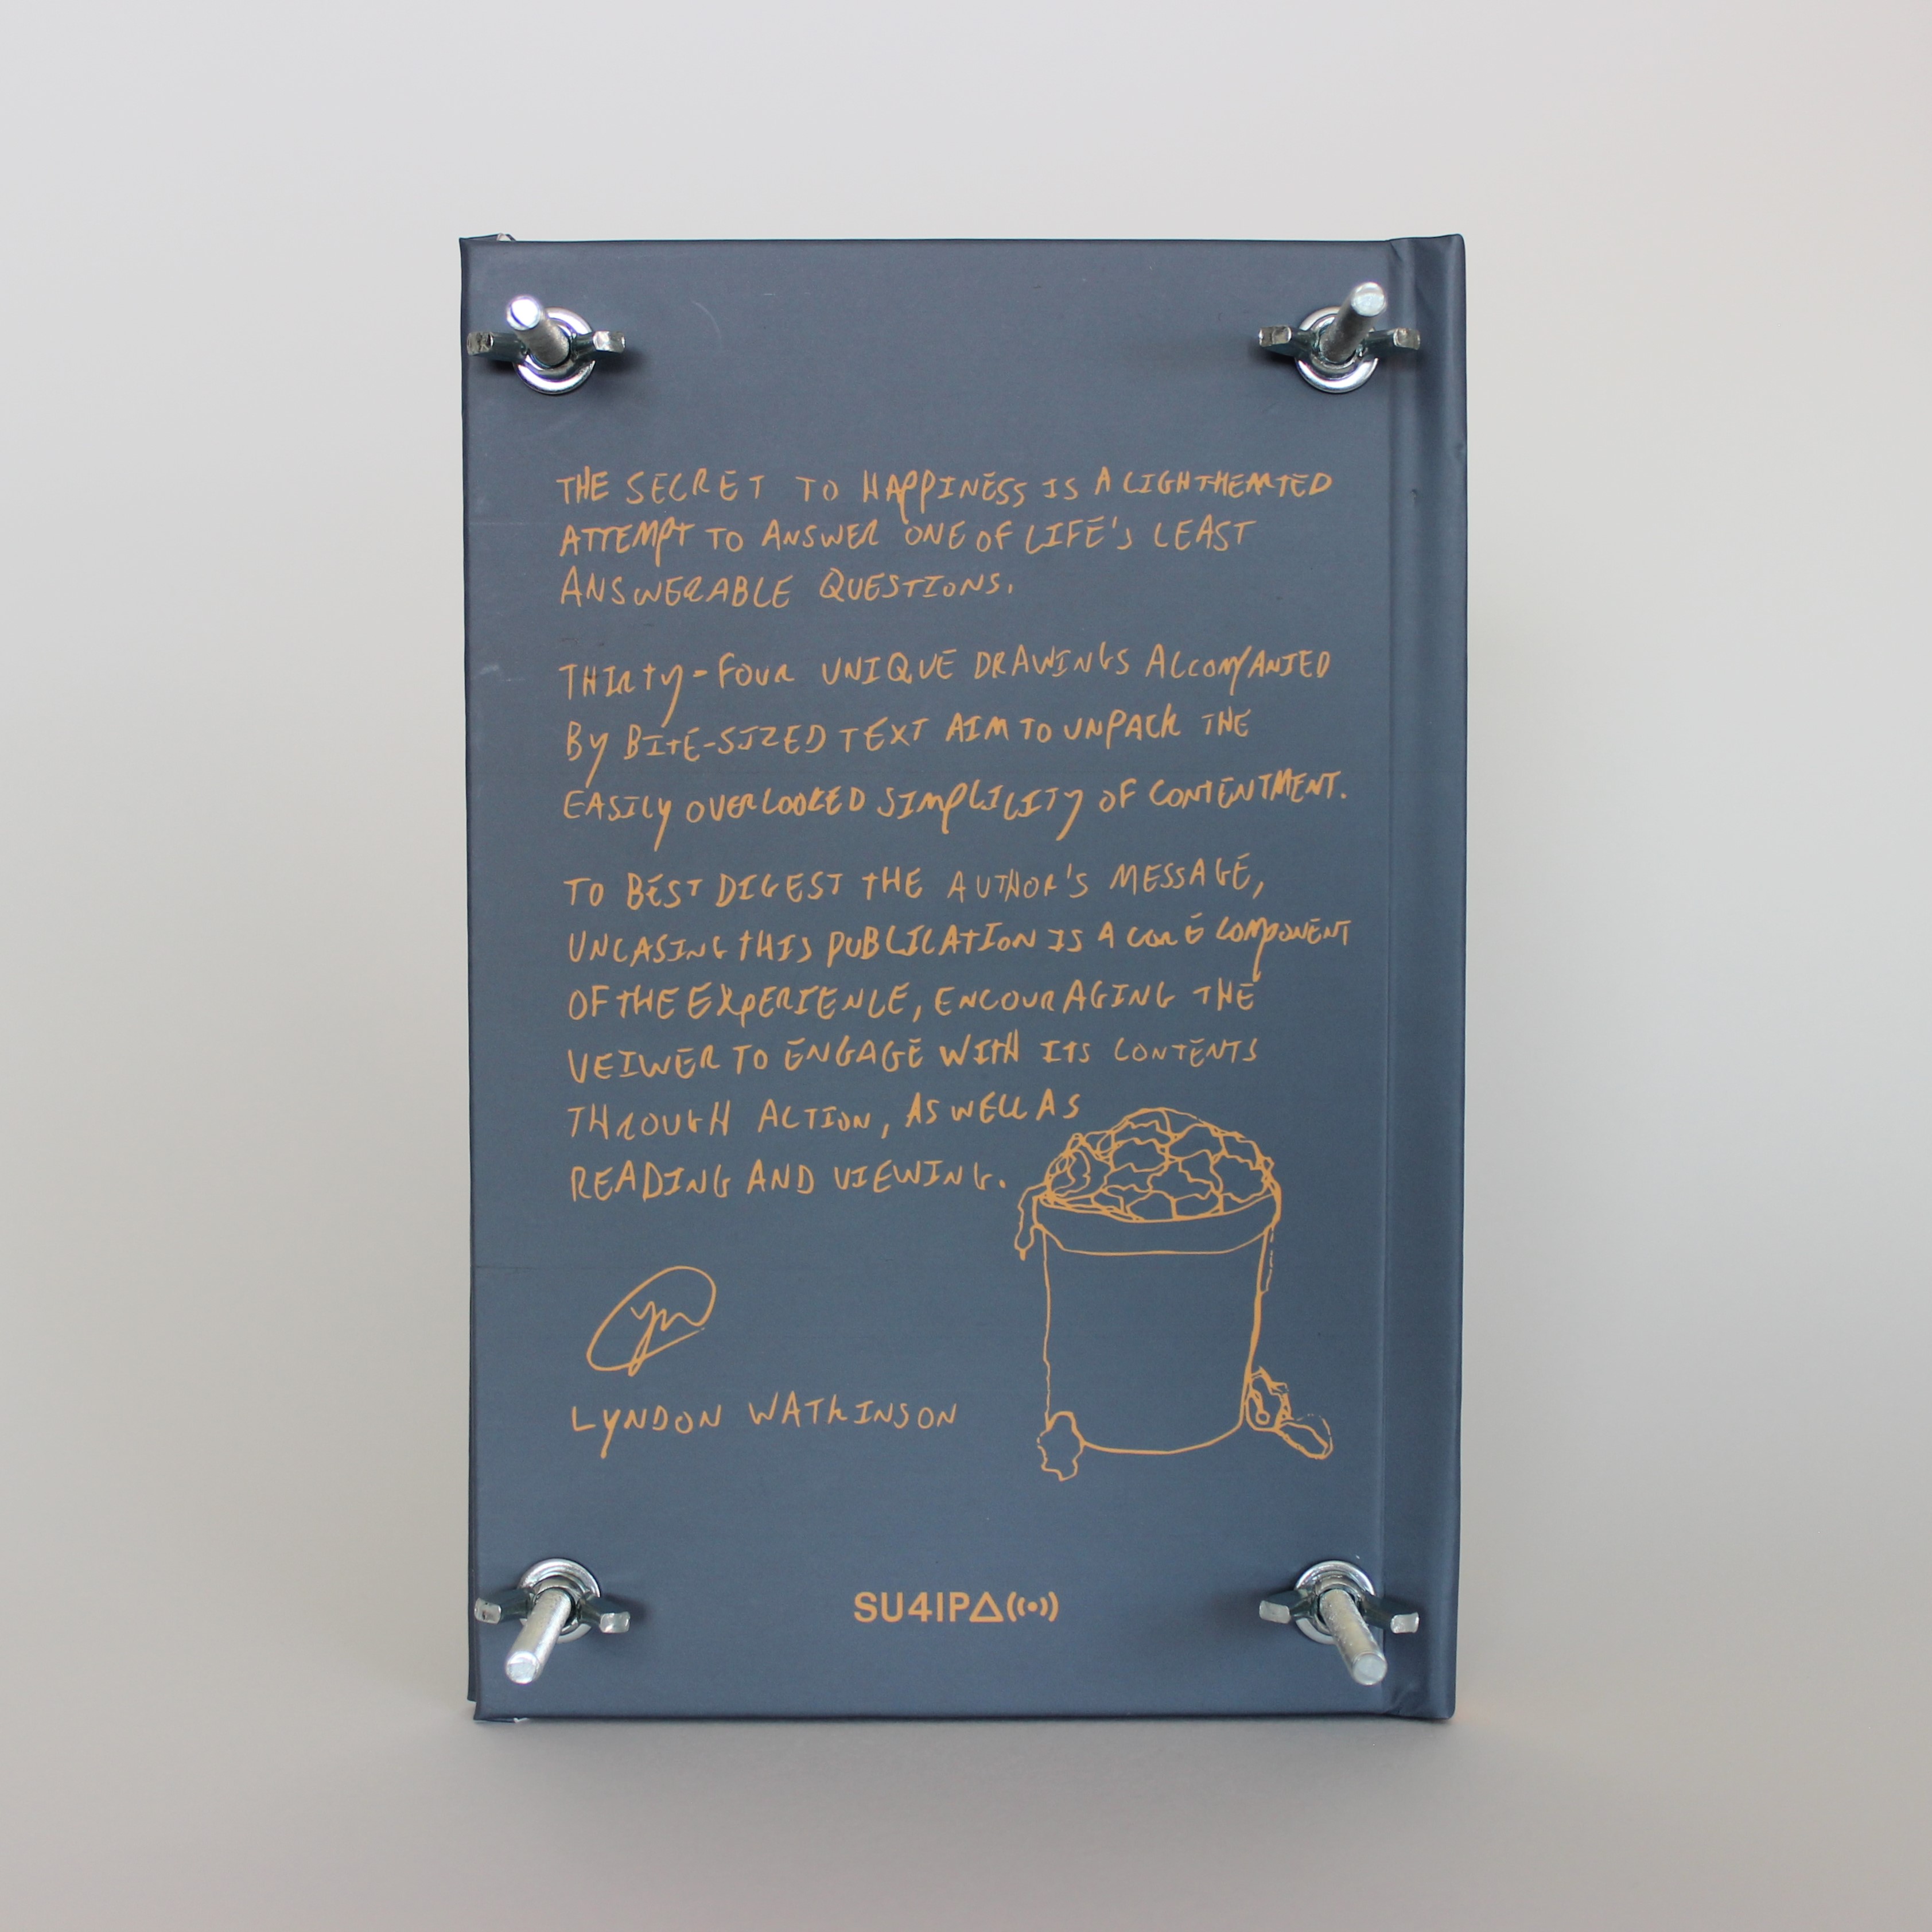 THE SECRET TO HAPPINESS IS A LIGHTHEARTED
ATTEMPT TO ANSWER ONE OF LIFE'S LEAST
ANSWERABLE QUESTIONS.
THIRTY-FOUR UNIQUE DRAWINGS ACCOMPANIED
BY BITE-SIZED TEXT AIM TO UNPACK THE
EASILY OVERLOOKED SIMPLICITY OF CONTENTMENT.
TO BEST DIGEST THE AUTHOR'S MESSAGE,
UNCASING THIS PUBLICATION IS A CORE COMPONENT
OF THE EXPERIENCE, ENCOURAGING THE
VEIWER TO ENGAGE WITH ITS CONTENTS
THROUGH ACTION, AS WELL AS
READING AND VIEWING.
LYNDON WATKINSON
SU4IP△((•))